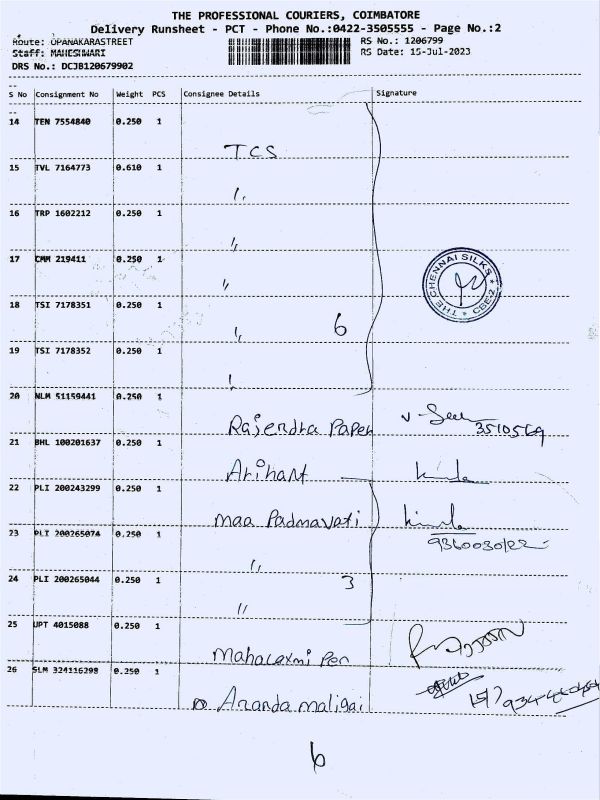 THE PROFESSIONAL COURIERS, COIMBATORE
Delivery Runsheet - PCT - Phone No.:0422-3505555 - Page No.:2
Route: OPANAKARASTREET
RS No.: 1206799
Staff: MAHESHWARI
RS Date: 15-Jul-2023
DRS No.: DCJB120679902
S No Consignment No Weight PCS Consignee Details Signature
14 TEN 7554840 0.250 1
TCS
15 TVL 7164773 0.610 1
"
16 TRP 1602212 0.250 1
"
17 CMM 219411 0.250 1
"
THE CHENNAI SILKS * CBE-2 *
18 TSI 7178351 0.250 1
" 6
19 TSI 7178352 0.250 1
"
20 NLM 51159441 0.250 1
Rajendra Paper
3510569
21 BHL 100201637 0.250 1
Arihant
22 PLI 200243299 0.250 1
maa Padmavati
23 PLI 200265074 0.250 1
"
24 PLI 200265044 0.250 1
" 3
25 UPT 4015088 0.250 1
Mahalaxmi Pen
26 SLM 324116298 0.250 1
Ananda maligai
6